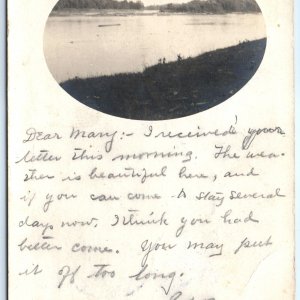 Dear Mary:- I received your
letter this morning. The wea-
ther is beautiful here, and
if you can come to stay several
days now, I think you had
better come. You may put
it off too long.